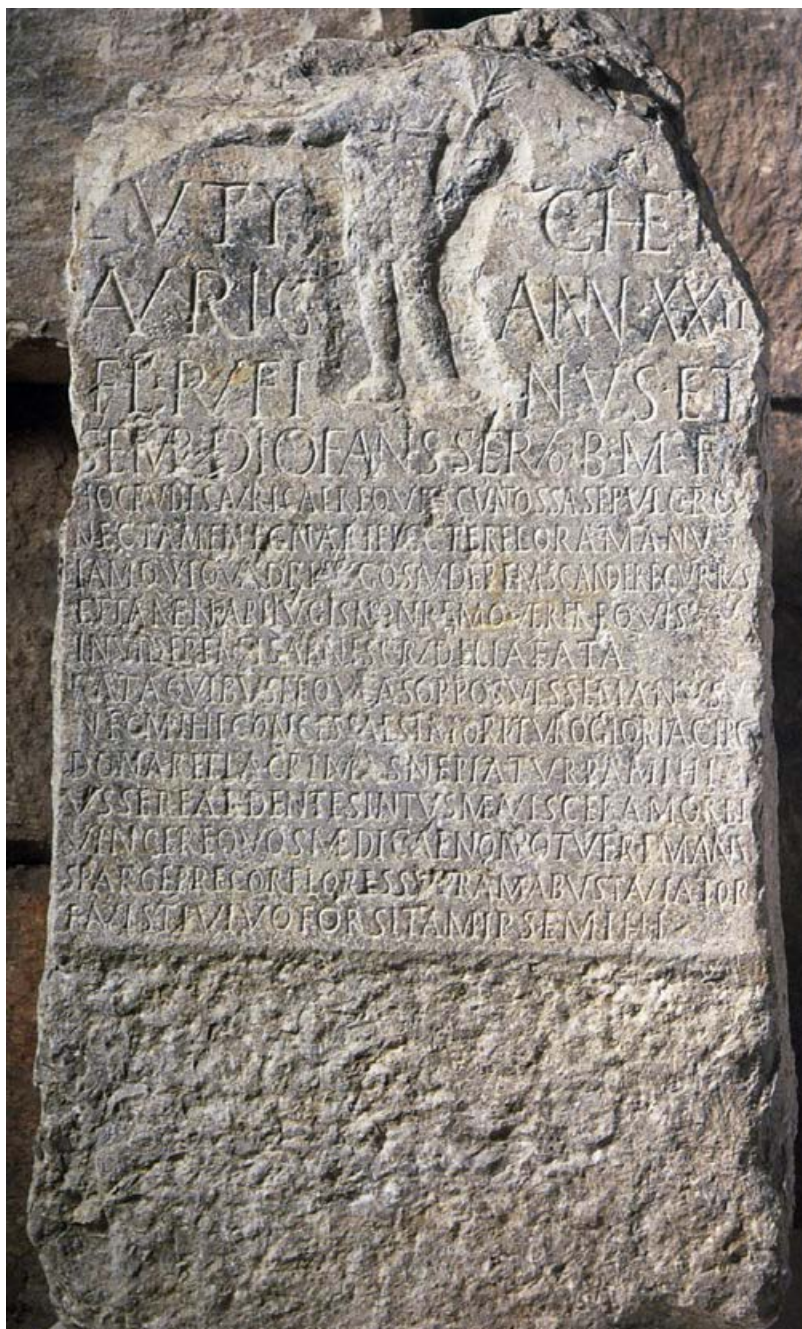 EVTY CHETI
AVRIG ANN·XXII
FL·RVFI NVS·ET
SEMP·DIOFANIS SER·B·M·F
HOC RVDIS AVRIGAE REQVIESCVNT OSSA SEPVLCRO
NEC TAMEN IGNARI FLECTERE LORA MANV
IAM QVI QVADRIIVGOS AVDEREM SCANDERE CVRRVS
ET TAMEN A BIIVGIS NON REMOVERER EQVIS
INVIDERE MEIS ANNIS CRVDELIA FATA
FATA QVIBVS NEQVEAS OPPOSVISSE MANVS
NEC MIHI CONCESSA EST MORITVRO GLORIA CIRCI
DONARET LACRIMAS NE PIA TVRBA MIHI
VSSERE ARDENTES INTVS MEA VISCERA MORBI
VINCERE QVOS MEDICAE NON POTVERE MANVS
SPARGE PRECOR FLORES SVPRA MEA BVSTA VIATOR
FAVISTI VIVO FORSITAM IPSE MIHI